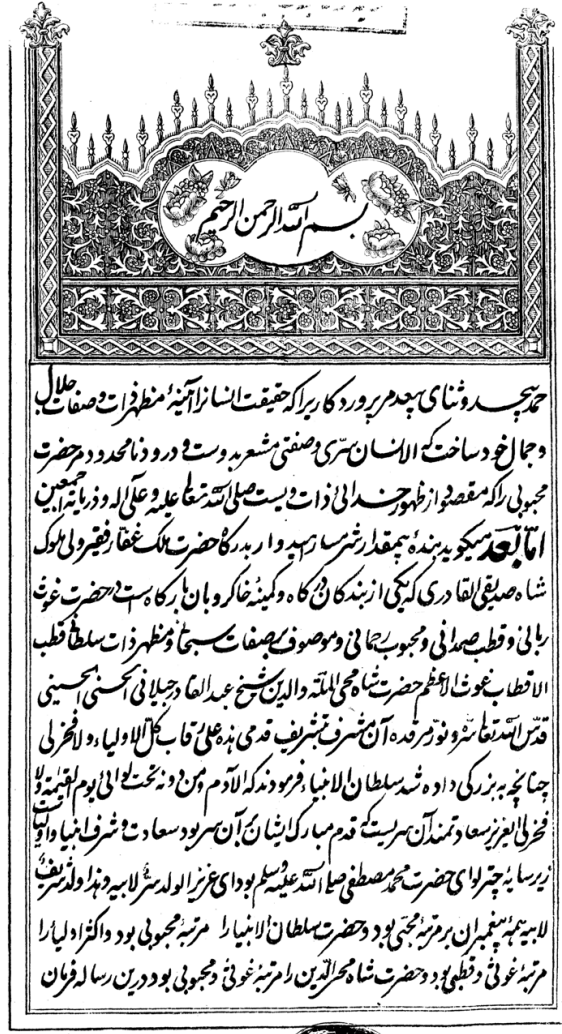 بسم الله الرحمن الرحیم
حمد بیحد و ثنای بیعد مر پروردگاریرا که حقیقت انسانرا آئینهٔ مظهر ذات و صفات جلال
و جمال خود ساخت که الانسان سرّی و صفتی مشعر بدوست و درود نامحدود مر حضرت
محبوبی را که مقصود از ظهور خدائی ذات ویست صلی الله تعالی علیه و علی آله و ذریاته اجمعین
اما بعد میگوید بندهٔ بیمقدار شرمسار امیدوار بدرگاه حضرت ملک غفار فقیر ولی ملوک
شاه صدیقی القادری که یکی از بندگان درگاه و کمینهٔ خاکروبان بارگاه است در حضرت غوث
ربانی و قطب صمدانی و محبوب رحمانی و موصوف بصفات سبحانی و مظهر ذات سلطانی قطب
الاقطاب غوث الاعظم حضرت شاه محی الملة والدین شیخ عبدالقادر جیلانی الحسنی الحسینی
قدس الله تعالی سره و نور مرقده آن مشرف بتشریف قدمی هذه علی رقاب کل الاولیاء و لا فخر لی
چنانچه به بزرگی داده شد سلطان الانبیاء فرمودند که الآدم و من دونه تحت لوائی یوم القیمة و لا
فخر لی العزیز سعادتمند آن سریست که قدم مبارک ایشان بر آن سر بود سعادت و شرف انبیا و اولیا
زیر سایهٔ چتر لوای حضرت محمد مصطفی صلی الله علیه وسلم بود ای عزیز الولد سرّ لابیه و هذا ولد شریف
لابیه همه پیغمبران بر مرتبهٔ محبی بود و حضرت سلطان الانبیا را مرتبهٔ محبوبی بود و اکثر اولیا را
مرتبهٔ غوثی و قطبی بود و حضرت شاه محی الدین را مرتبهٔ غوثی و محبوبی بود درین رساله فرمان